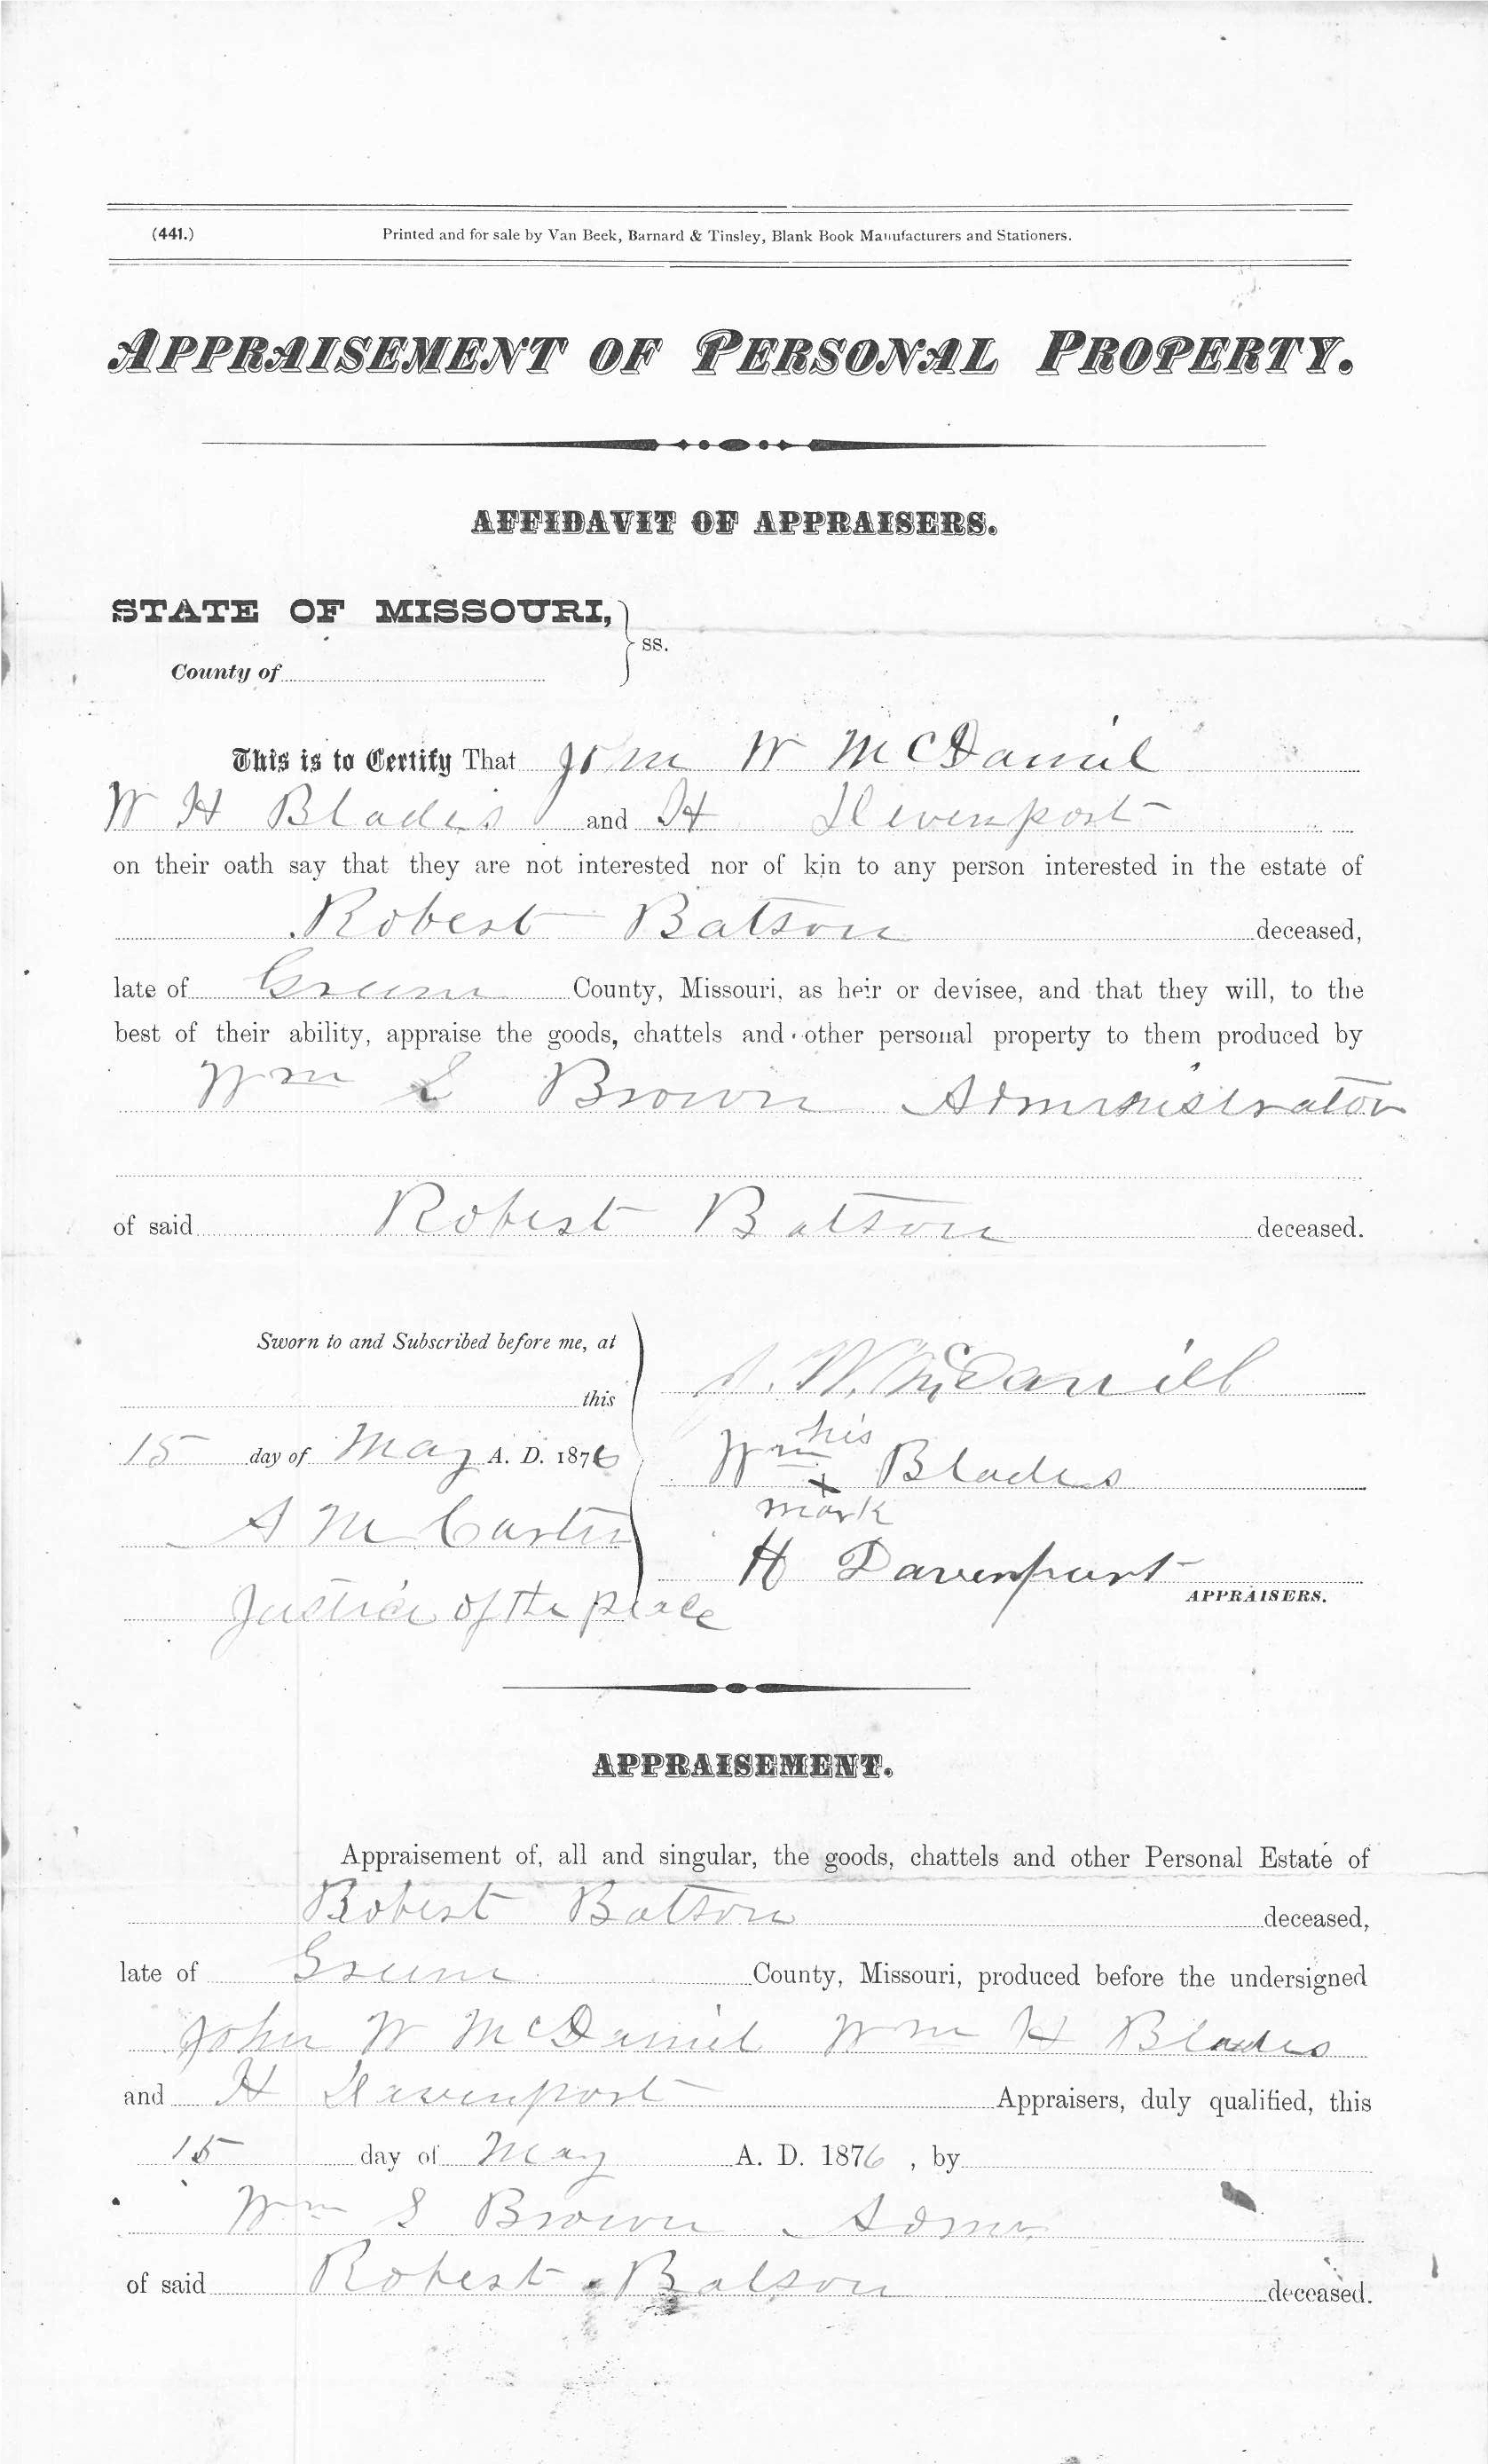 (441.) Printed and for sale by Van Beek, Barnard & Tinsley, Blank Book Manufacturers and Stationers.
APPRAISEMENT OF PERSONAL PROPERTY.
AFFIDAVIT OF APPRAISERS.
STATE OF MISSOURI,
ss.
County of
This is to Certify That John W McDaniel
W H Blades and H Devenport
on their oath say that they are not interested nor of kin to any person interested in the estate of
Robert Batson deceased,
late of Green County, Missouri, as heir or devisee, and that they will, to the
best of their ability, appraise the goods, chattels and other personal property to them produced by
Wm S Brown Administrator
of said Robert Batson deceased.
Sworn to and Subscribed before me, at
this
15 day of May A. D. 1876
S M Carter
Justice of the peace
J. W. McDaniel
his
Wm x Blades
mark
H Davenport
APPRAISERS.
APPRAISEMENT.
Appraisement of, all and singular, the goods, chattels and other Personal Estate of
Robert Batson deceased,
late of Green County, Missouri, produced before the undersigned
John W McDaniel Wm H Blades
and H Davenport Appraisers, duly qualified, this
15 day of May A. D. 1876, by
Wm S Brown Admr
of said Robert Batson deceased.